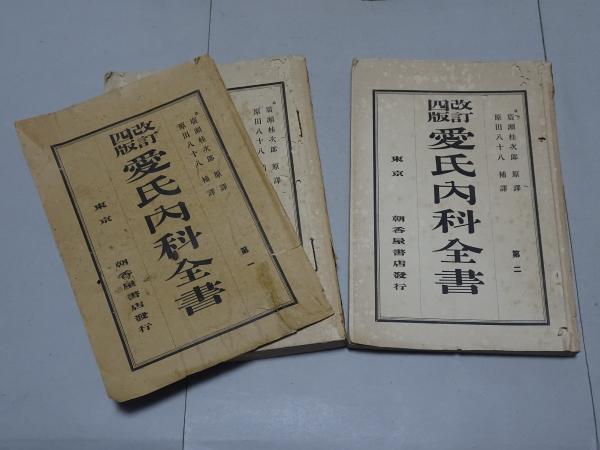 改訂
四版
愛氏內科全書
廣瀨桂次郎 原譯
原田八十八 補譯
第一
東京
朝香屋書店發行
廣瀨桂次郎 原譯
原田八十八
改訂
四版
愛氏內科全書
廣瀨桂次郎 原譯
原田八十八 補譯
第二
東京
朝香屋書店發行